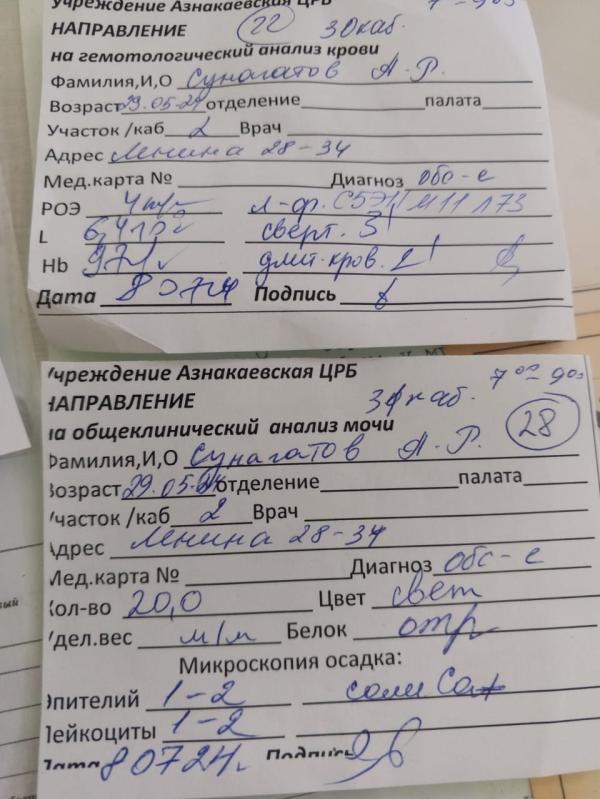 Учреждение Азнакаевская ЦРБ 7 - 9 03
НАПРАВЛЕНИЕ 22 30 каб.
на гемотологический анализ крови
Фамилия,И,О Сунагатов А.Р.
Возраст 29.05.24 отделение палата
Участок /каб 2 Врач
Адрес Ленина 28-34
Мед.карта № Диагноз обс-е
РОЭ 4 мм/ч л-ф. С5 Э1 М11 Л73
L 6,4 сверт. 3'
Hb 97 длит-кров. 1'
Дата 8 07 24 Подпись
Учреждение Азнакаевская ЦРБ 7 00 - 9 00
НАПРАВЛЕНИЕ каб.
на общеклинический анализ мочи 28
Фамилия,И,О Сунагатов А.Р.
Возраст 29.05.24 отделение палата
Участок /каб 2 Врач
Адрес Ленина 28-34
Мед.карта № Диагноз обс-е
Кол-во 20,0 Цвет свет
Удел.вес м/м Белок отр
Микроскопия осадка:
Эпителий 1-2 соли
Лейкоциты 1-2
Дата 8 07 24г. Подпись